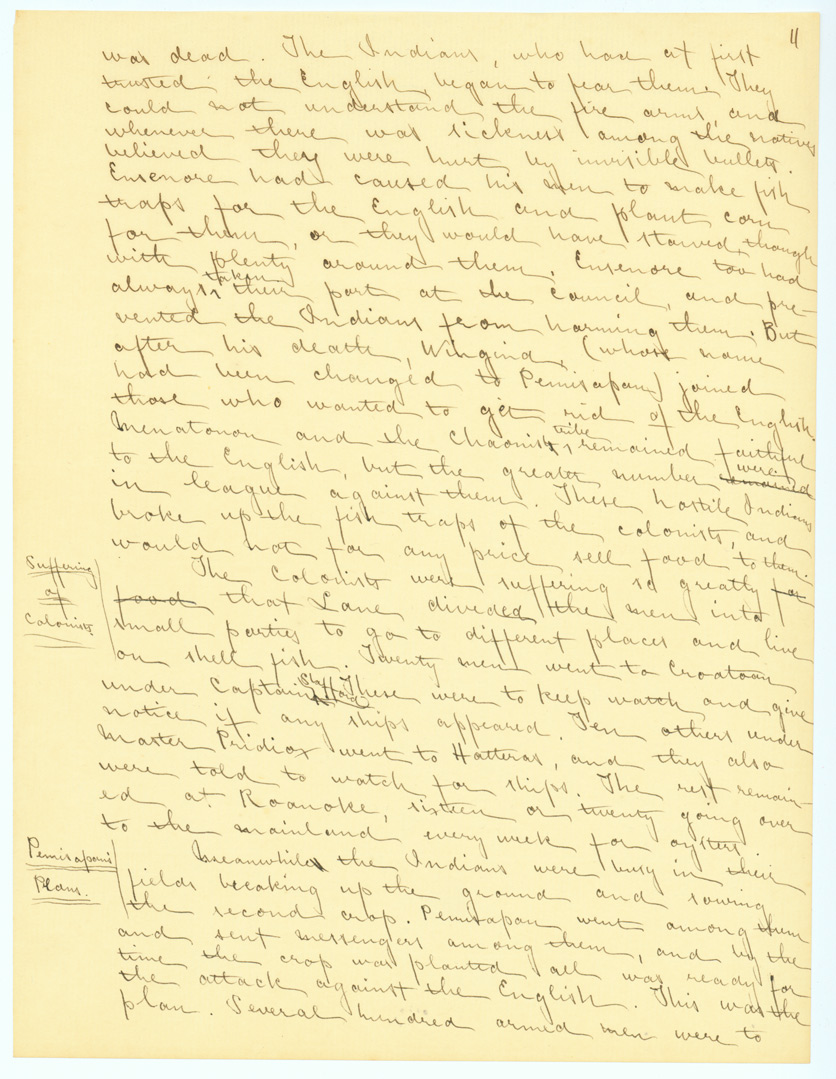 11
was dead. The Indians, who had at first
trusted the English, began to fear them. They
could not understand the fire arms, and
whenever there was sickness among the natives
believed they were hurt by invisible bullets.
Ensenore had caused his men to make fish
traps for the English and plant corn
for them, or they would have starved, though
with plenty around them. Ensenore too had
always taken their part at the council, and pre-
vented the Indians from harming them. But
after his death, Wingina, (whose name
had been changed to Pemisapan) joined
those who wanted to get rid of the English.
Menatonon and the Chaonists tribe, remained faithful
to the English, but the greater number remained were
in league against them. These hostile Indians
broke up the fish traps of the colonists, and
would not for any price sell food to them.
Suffering
of
Colonists.
The Colonists were suffering so greatly for
food that Lane divided the men into
small parties to go to different places and live
on shell fish. Twenty men went to Croatoan
under Captain Stafford. These were to keep watch and give
notice if any ships appeared. Ten others under
Master Pridiox went to Hatteras, and they also
were told to watch for ships. The rest remain-
ed at Roanoke, sixteen or twenty going over
to the mainland every week for oysters.
Pemisapan's
Plans.
Meanwhile the Indians were busy in their
fields breaking up the ground and sowing
the second crop. Pemisapan went among them
and sent messengers among them, and by the
time the crop was planted all was ready for
the attack against the English. This was the
plan. Several hundred armed men were to